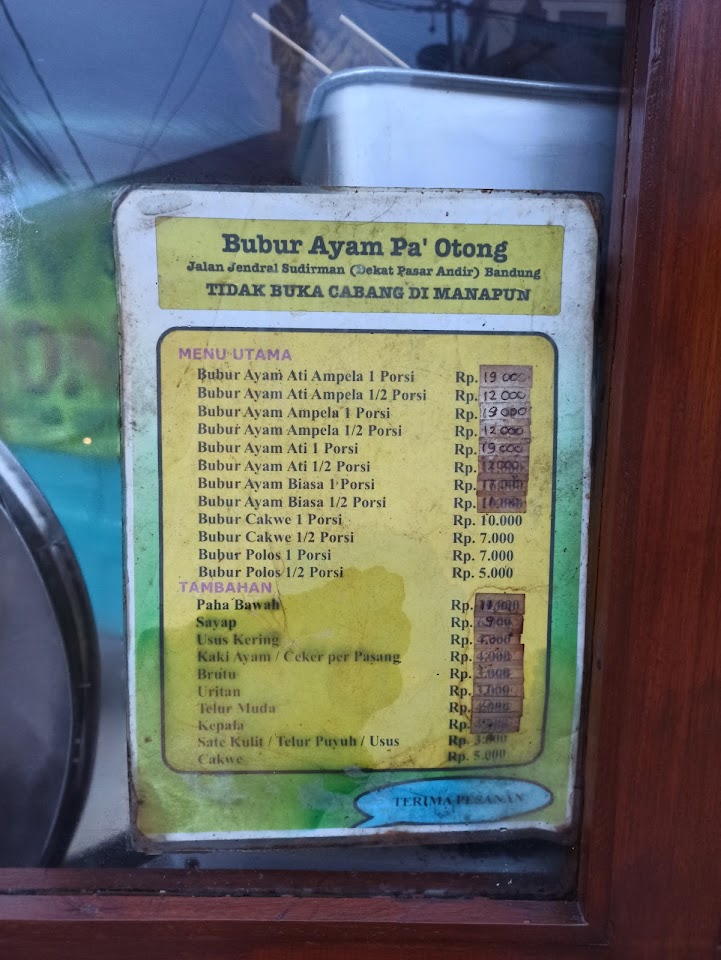 Bubur Ayam Pa' Otong
Jalan Jendral Sudirman (Dekat Pasar Andir) Bandung
TIDAK BUKA CABANG DI MANAPUN
MENU UTAMA
Bubur Ayam Ati Ampela 1 Porsi Rp. 19 000
Bubur Ayam Ati Ampela 1/2 Porsi Rp. 12 000
Bubur Ayam Ampela 1 Porsi Rp. 19 000
Bubur Ayam Ampela 1/2 Porsi Rp. 12 000
Bubur Ayam Ati 1 Porsi Rp. 19 000
Bubur Ayam Ati 1/2 Porsi Rp. 12 000
Bubur Ayam Biasa 1 Porsi Rp.
Bubur Ayam Biasa 1/2 Porsi Rp.
Bubur Cakwe 1 Porsi Rp. 10.000
Bubur Cakwe 1/2 Porsi Rp. 7.000
Bubur Polos 1 Porsi Rp. 7.000
Bubur Polos 1/2 Porsi Rp. 5.000
TAMBAHAN
Paha Bawah Rp.
Sayap Rp.
Usus Kering Rp. 4.000
Kaki Ayam / Ceker per Pasang Rp. 4.000
Brutu Rp. 3.000
Uritan Rp. 3.000
Telur Muda Rp.
Kepala Rp.
Sate Kulit / Telur Puyuh / Usus Rp. 3.000
Cakwe Rp. 5.000
TERIMA PESANAN